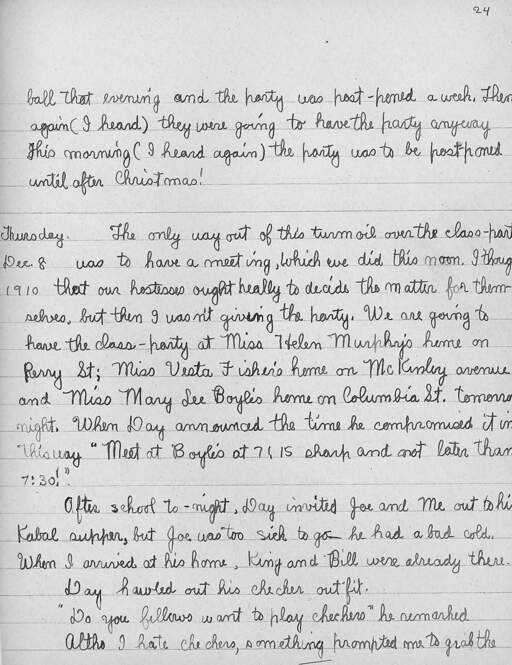 24
ball that evening and the party was post-poned a week. Then
again (I heard) they were going to have the party anyway
This morning (I heard again) the party was to be postponed
until after Christmas!
Thursday. The only way out of this turmoil over the class-part
Dec. 8 was to have a meeting, which we did this noon. I thoug
1910 that our hostesses ought really to decide the matter for them-
selves, but then I wasn't giving the party. We are going to
have the class-party at Miss Helen Murphy's home on
Perry St; Miss Vesta Fisher's home on McKinley avenue
and Miss Mary Lee Boyle's home on Columbia St. tomorro
night. When Day announced the time he compromised it in
this way "Meet at Boyle's at 7:15 sharp and not later than
7:30!".
After school to-night, Day invited Joe and me out to hi
Kabal supper, but Joe was too sick to go he had a bad cold.
When I arrived at his home, King and Bill were already there.
Day hawled out his checher outfit.
"Do you fellows want to play checkers" he remarked
Altho I hate checkers, something prompted me to grab the